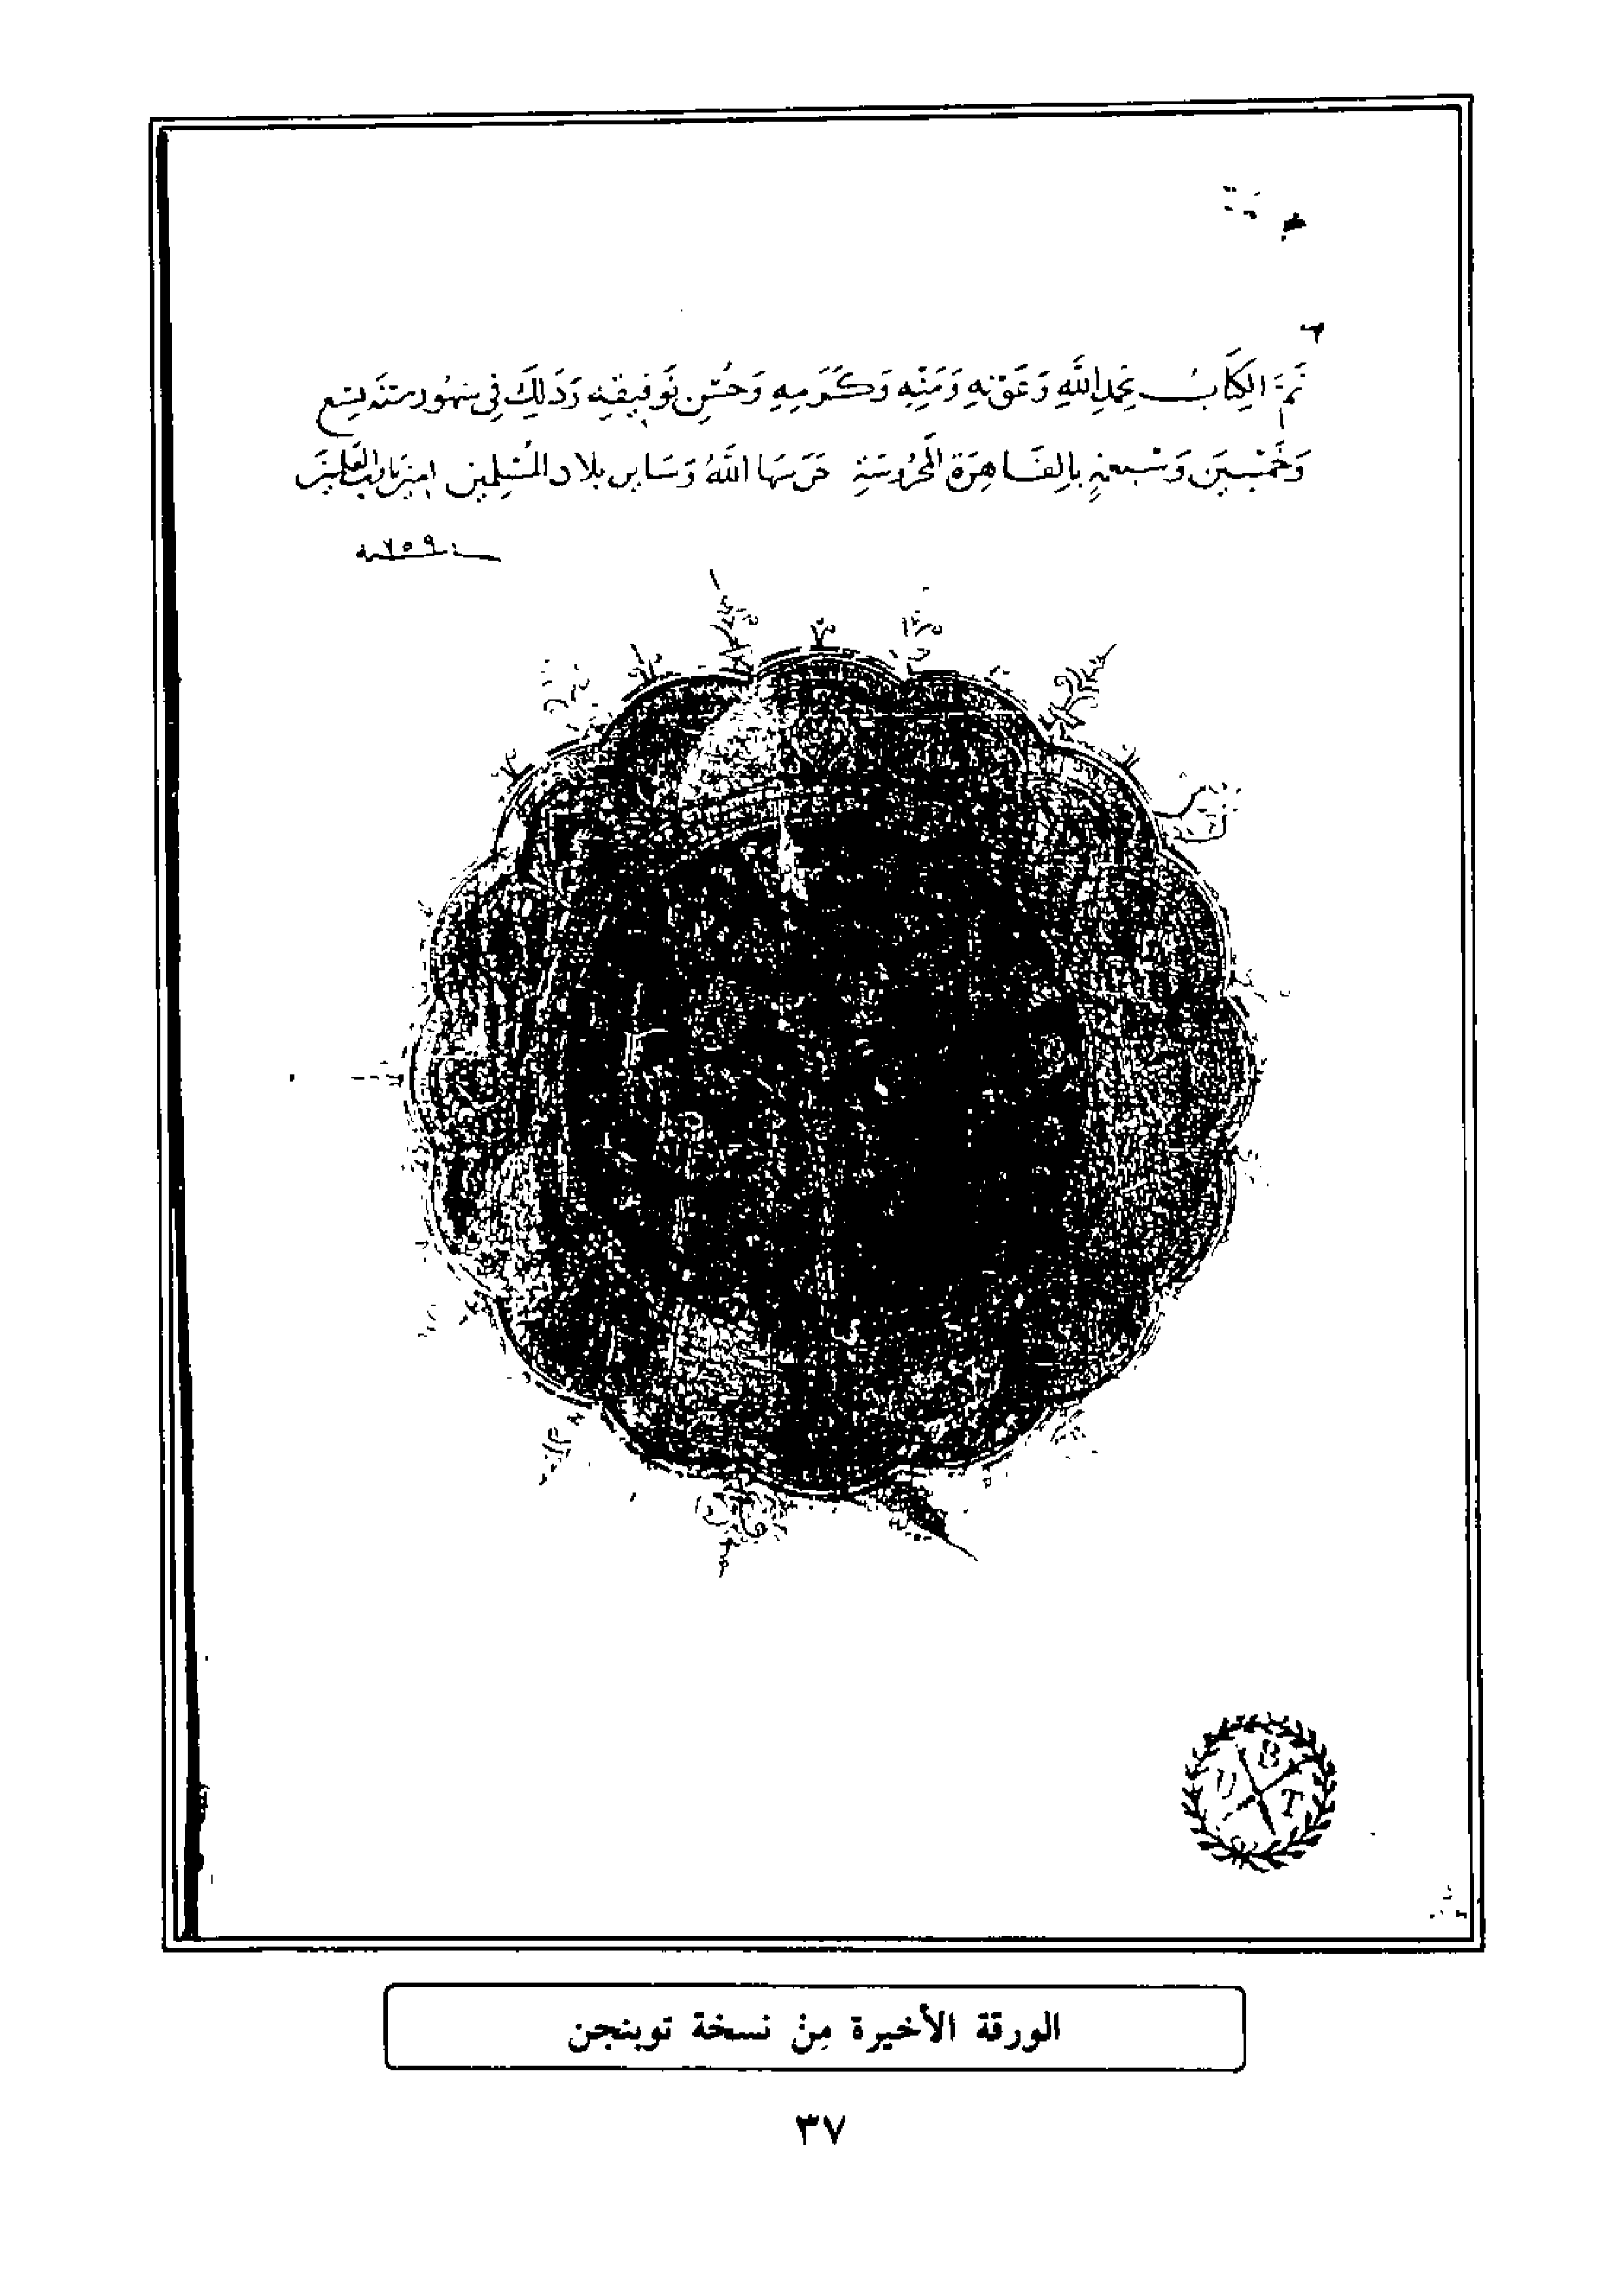 تَمَّ الكِتَابُ بحَمدِ اللَّهِ وَعَوْنِهِ وَمَنِّهِ وَكَرَمِهِ وَحُسْنِ تَوفيقِهِ وَذَلِكَ فِي شهُور سَنَة تِسع
وَخَمْسِينَ وَسَبعمئةٍ بِالقَاهِرَة المحْرُوسَةِ حَرَسَهَا اللَّهُ وَسَاير بلاد المُسْلِمين امين يارب العَلَمِين
٧٥٩
U B T
الورقة الأخيرة مِنْ نسخة توبنجن
٣٧